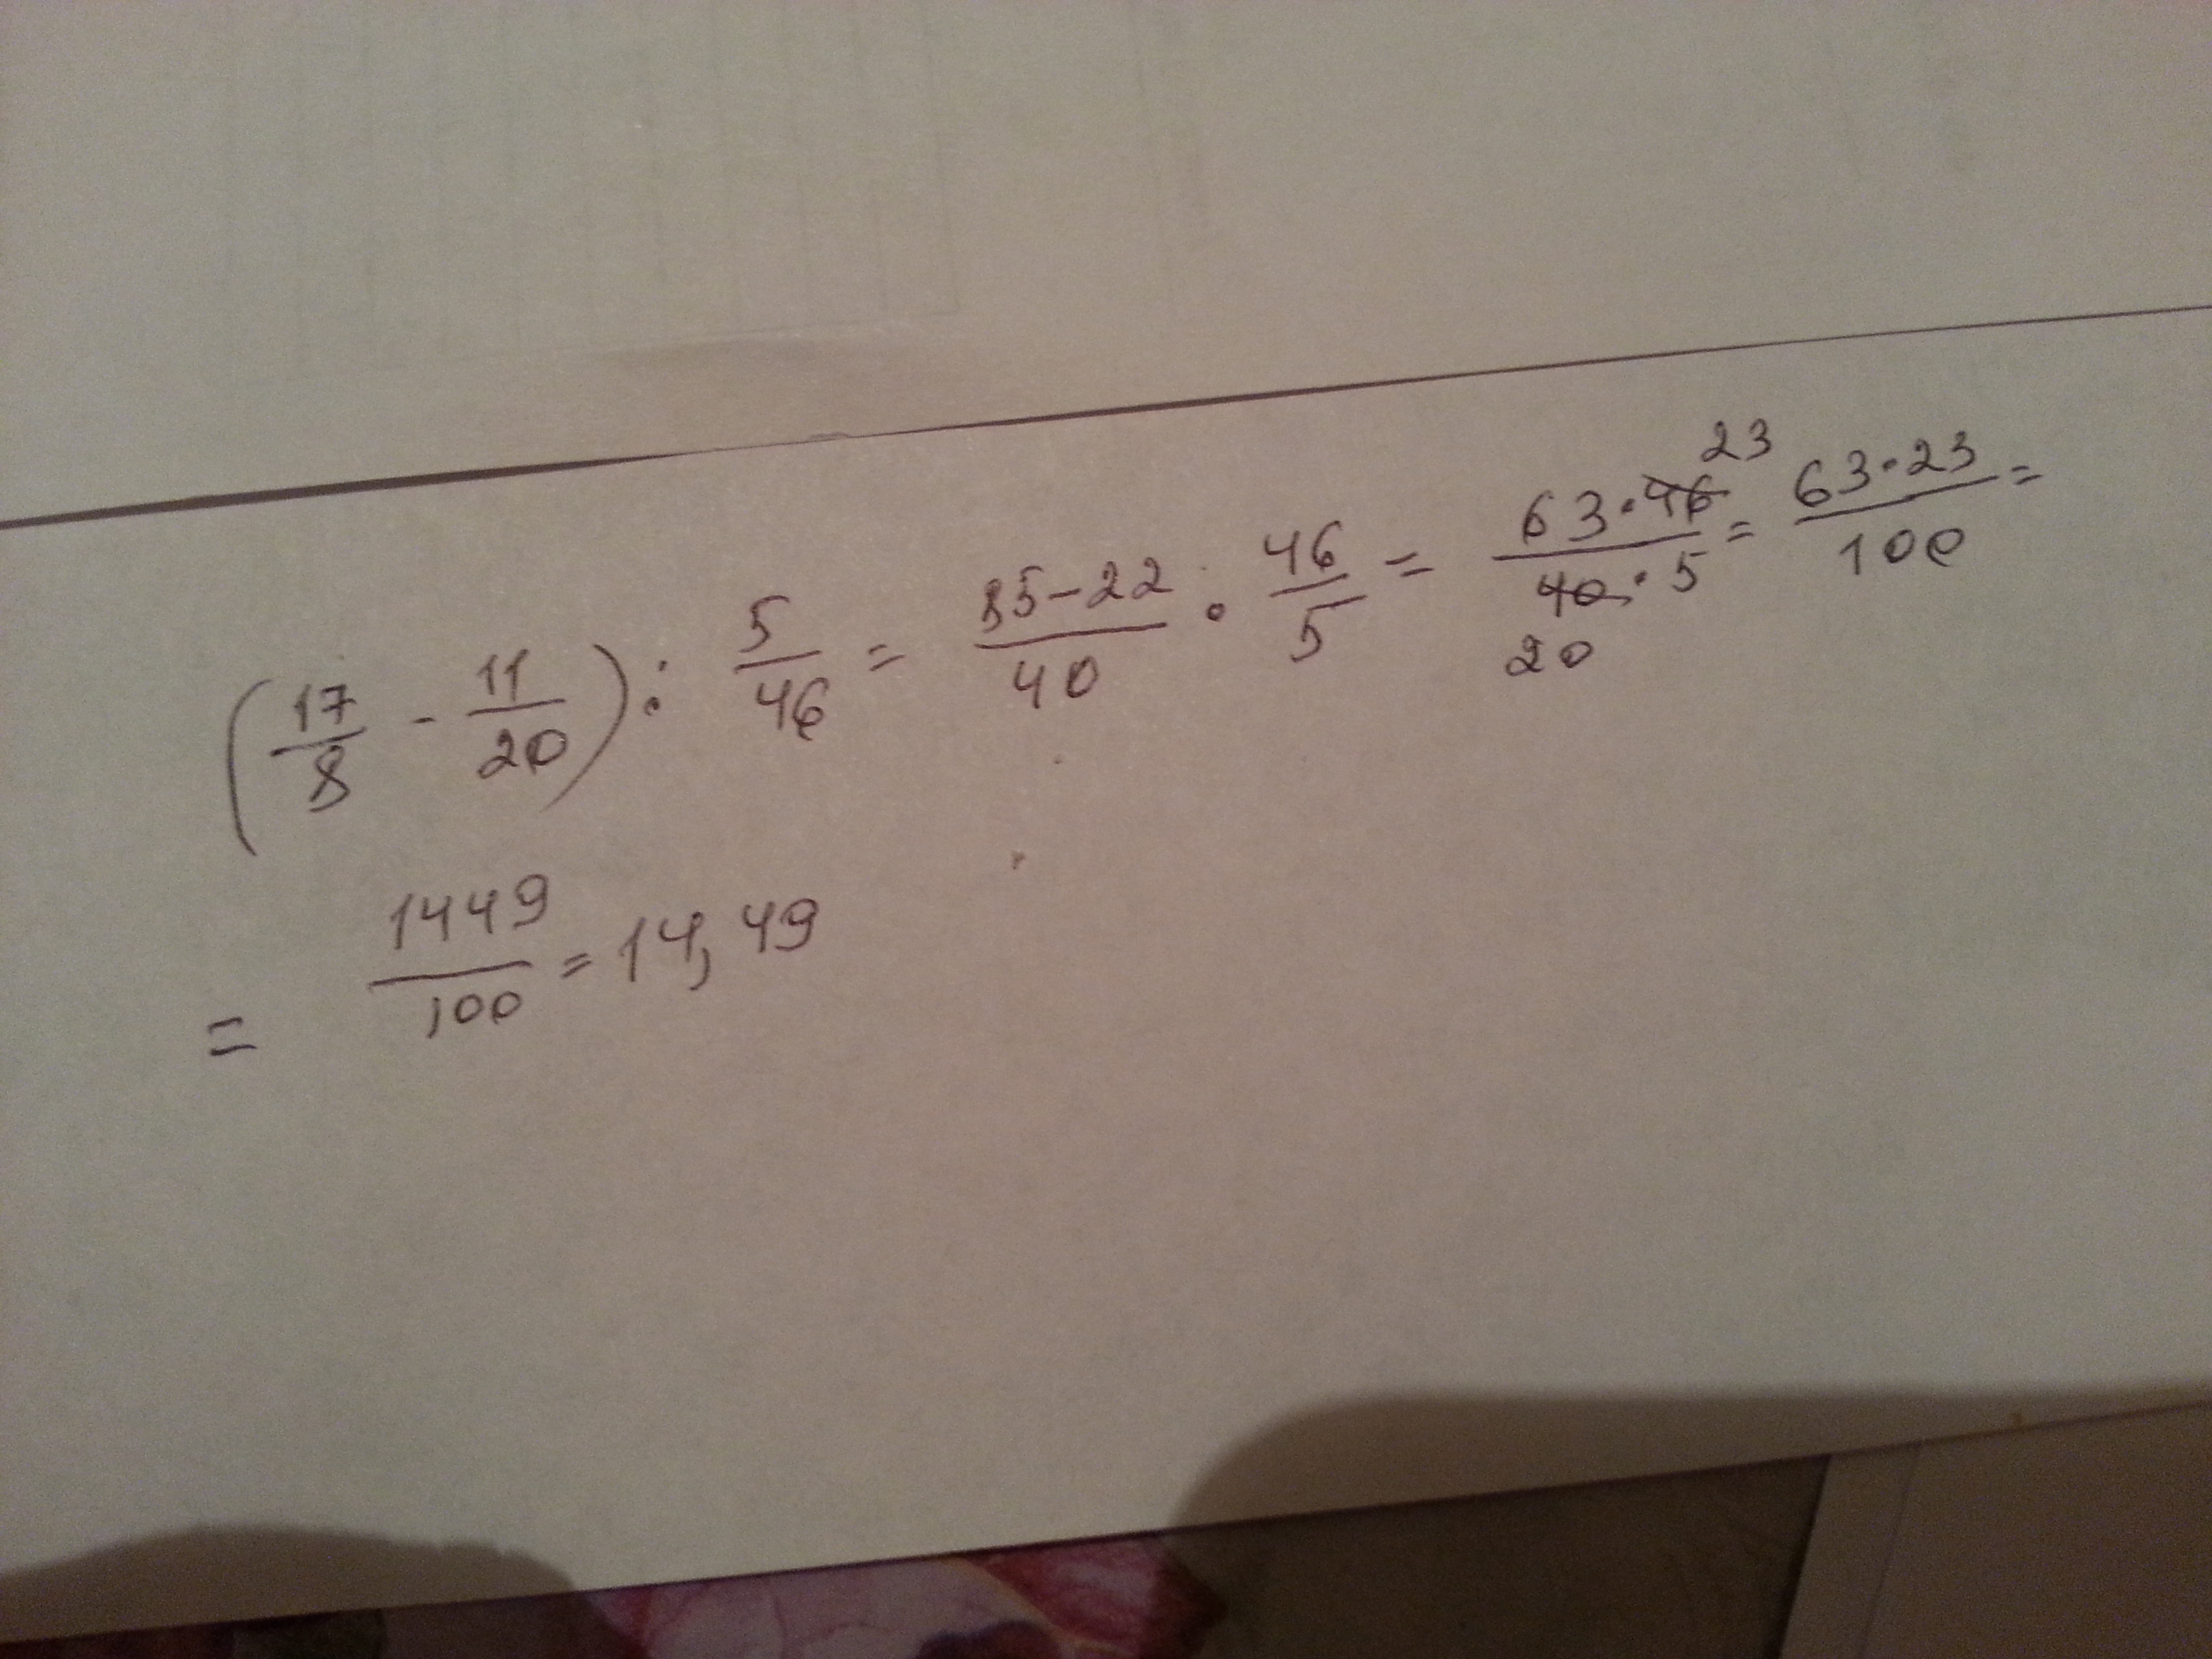 (17/8 - 11/20) : 5/46 = 85-22/40 · 46/5 = 63·46 23/40·5 20 = 63·23/100 =
= 1449/100 = 14,49